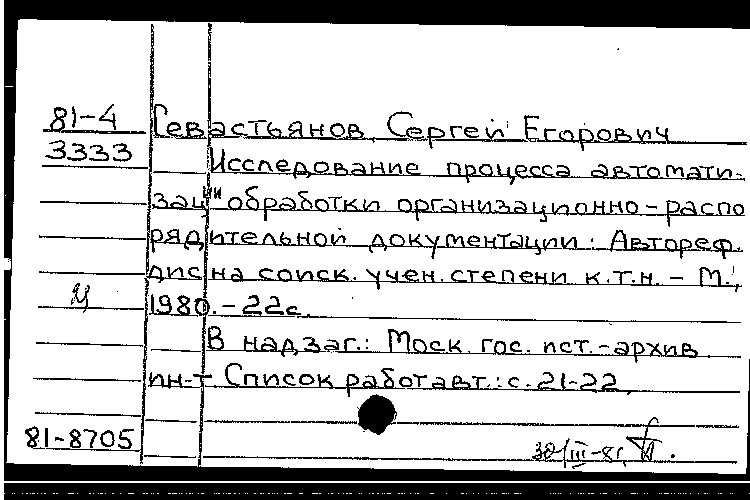 81-4
Севастьянов, Сергей Егорович
3333
Исследование процесса автомати-
зации обработки организационно-распо
рядительной документации: Автореф.
дис на соиск. учен. степени к.т.н. - М.,
1980. - 22с.
В надзаг.: Моск. гос. ист.-архив.
ин-т. Список работ авт.: с. 21-22.
81-8705
30/III-81